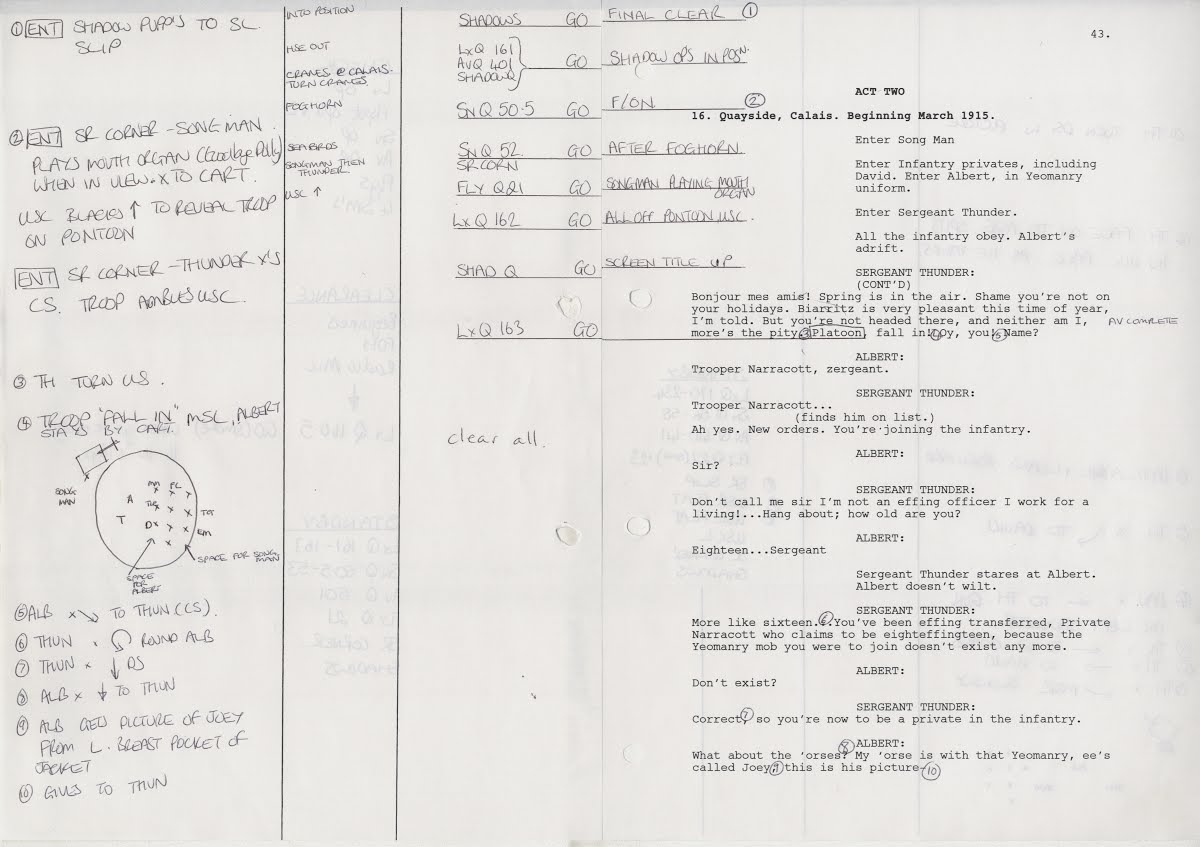 ① ENT SHADOW PUPPETS TO SL
SLIP
② ENT SR CORNER - SONGMAN.
PLAYS MOUTH ORGAN (Goodbye Dolly)
WHEN IN VIEW. X TO CART.
USC BLACKS ↑ TO REVEAL TROOP
ON PONTOON
ENT SR CORNER - THUNDER X'S
CS. TROOP AMBLES USC.
③ TH TURN US.
④ TROOP "FALL IN" MSL, ALBERT
STAYS BY CART.
SONG
MAN
A
T
SPACE FOR SONG
MAN
SPACE
FOR
ALBERT
⑤ ALB X ↘ TO THUN (CS).
⑥ THUN ROUND ALB
⑦ THUN X ↓ DS
⑧ ALB X ↓ TO THUN
⑨ ALB GETS PICTURE OF JOEY
FROM L. BREAST POCKET OF
JACKET
⑩ GIVES TO THUN
INTO POSITION
HSE OUT
CRANES @ CALAIS.
TURN CRANES.
FOGHORN
SEABIRDS
SONGMAN THEN
THUNDER.
USC ↑
SHADOWS GO FINAL CLEAR ①
LxQ 161
AVQ 401
SHADOWQ
GO SHADOW OPS IN POSN.
SNQ 50.5 GO F/ON ②
SNQ 52 GO AFTER FOGHORN
SR CORN
FLY Q21 GO SONGMAN PLAYING MOUTH
ORGAN
LxQ 162 GO ALL OFF PONTOON USC.
SHAD Q GO SCREEN TITLE UP
LxQ 163 GO
clear all.
43.
ACT TWO
16. Quayside, Calais. Beginning March 1915.
Enter Song Man
Enter Infantry privates, including
David. Enter Albert, in Yeomanry
uniform.
Enter Sergeant Thunder.
All the infantry obey. Albert's
adrift.
SERGEANT THUNDER:
(CONT'D)
Bonjour mes amis! Spring is in the air. Shame you're not on
your holidays. Biarritz is very pleasant this time of year,
I'm told. But you're not headed there, and neither am I, AV COMPLETE
more's the pity. ③ Platoon, fall in! ④ Oy, you! ⑤ Name?
ALBERT:
Trooper Narracott, zergeant.
SERGEANT THUNDER:
Trooper Narracott...
(finds him on list.)
Ah yes. New orders. You're joining the infantry.
ALBERT:
Sir?
SERGEANT THUNDER:
Don't call me sir I'm not an effing officer I work for a
living!...Hang about; how old are you?
ALBERT:
Eighteen...Sergeant
Sergeant Thunder stares at Albert.
Albert doesn't wilt.
SERGEANT THUNDER:
More like sixteen. ⑥ You've been effing transferred, Private
Narracott who claims to be eighteffingteen, because the
Yeomanry mob you were to join doesn't exist any more.
ALBERT:
Don't exist?
SERGEANT THUNDER:
Correct, ⑦ so you're now to be a private in the infantry.
ALBERT:
What about the 'orses? ⑧ My 'orse is with that Yeomanry, ee's
called Joey, ⑨ this is his picture- ⑩